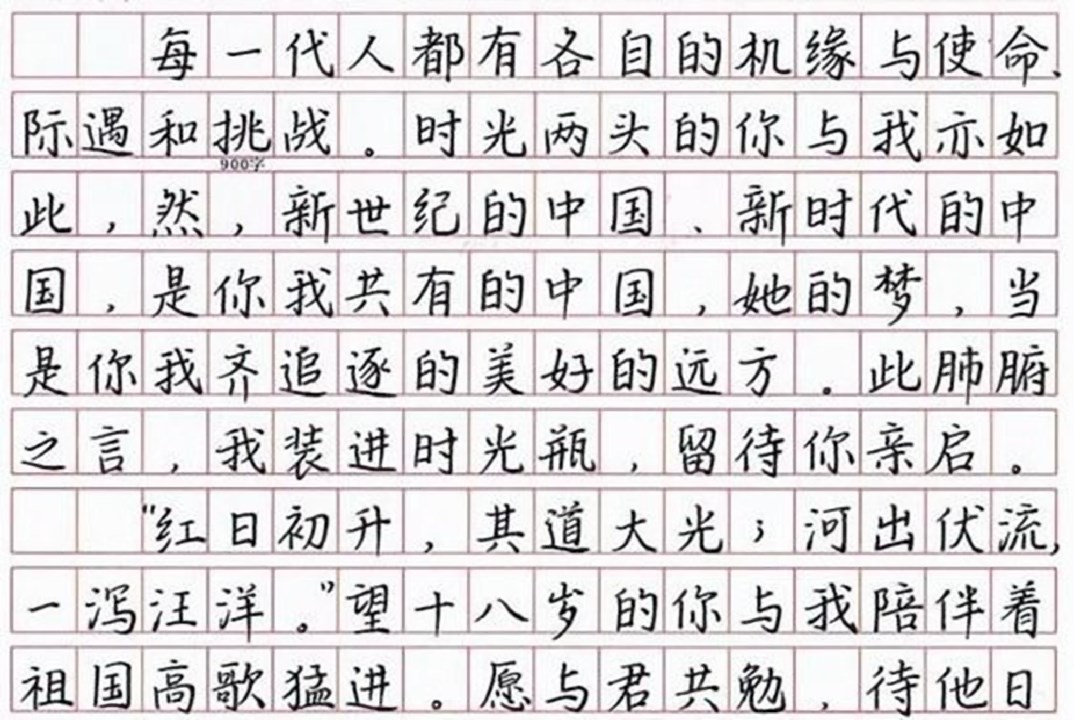 每一代人都有各自的机缘与使命、
际遇和挑战。时光两头的你与我亦如
900字
此，然，新世纪的中国、新时代的中
国，是你我共有的中国，她的梦，当
是你我齐追逐的美好的远方。此肺腑
之言，我装进时光瓶，留待你亲启。
“红日初升，其道大光；河出伏流，
一泻汪洋。”望十八岁的你与我陪伴着
祖国高歌猛进。愿与君共勉，待他日